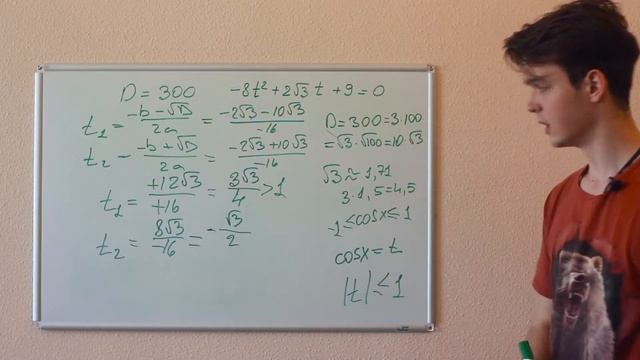 D = 300 -8t² + 2√3 t + 9 = 0
t₁ = (-b - √D)/2a = (-2√3 - 10√3)/-16
t₂ = (-b + √D)/2a = (-2√3 + 10√3)/-16
t₁ = +12√3/+16 = 3√3/4 > 1
t₂ = 8√3/-16 = -√3/2
D = 300 = 3·100
= √3·√100 = 10·√3
√3 ≈ 1,71
3·1,5 = 4,5
-1 ≤ cosx ≤ 1
cosx = t
|t| ≤ 1